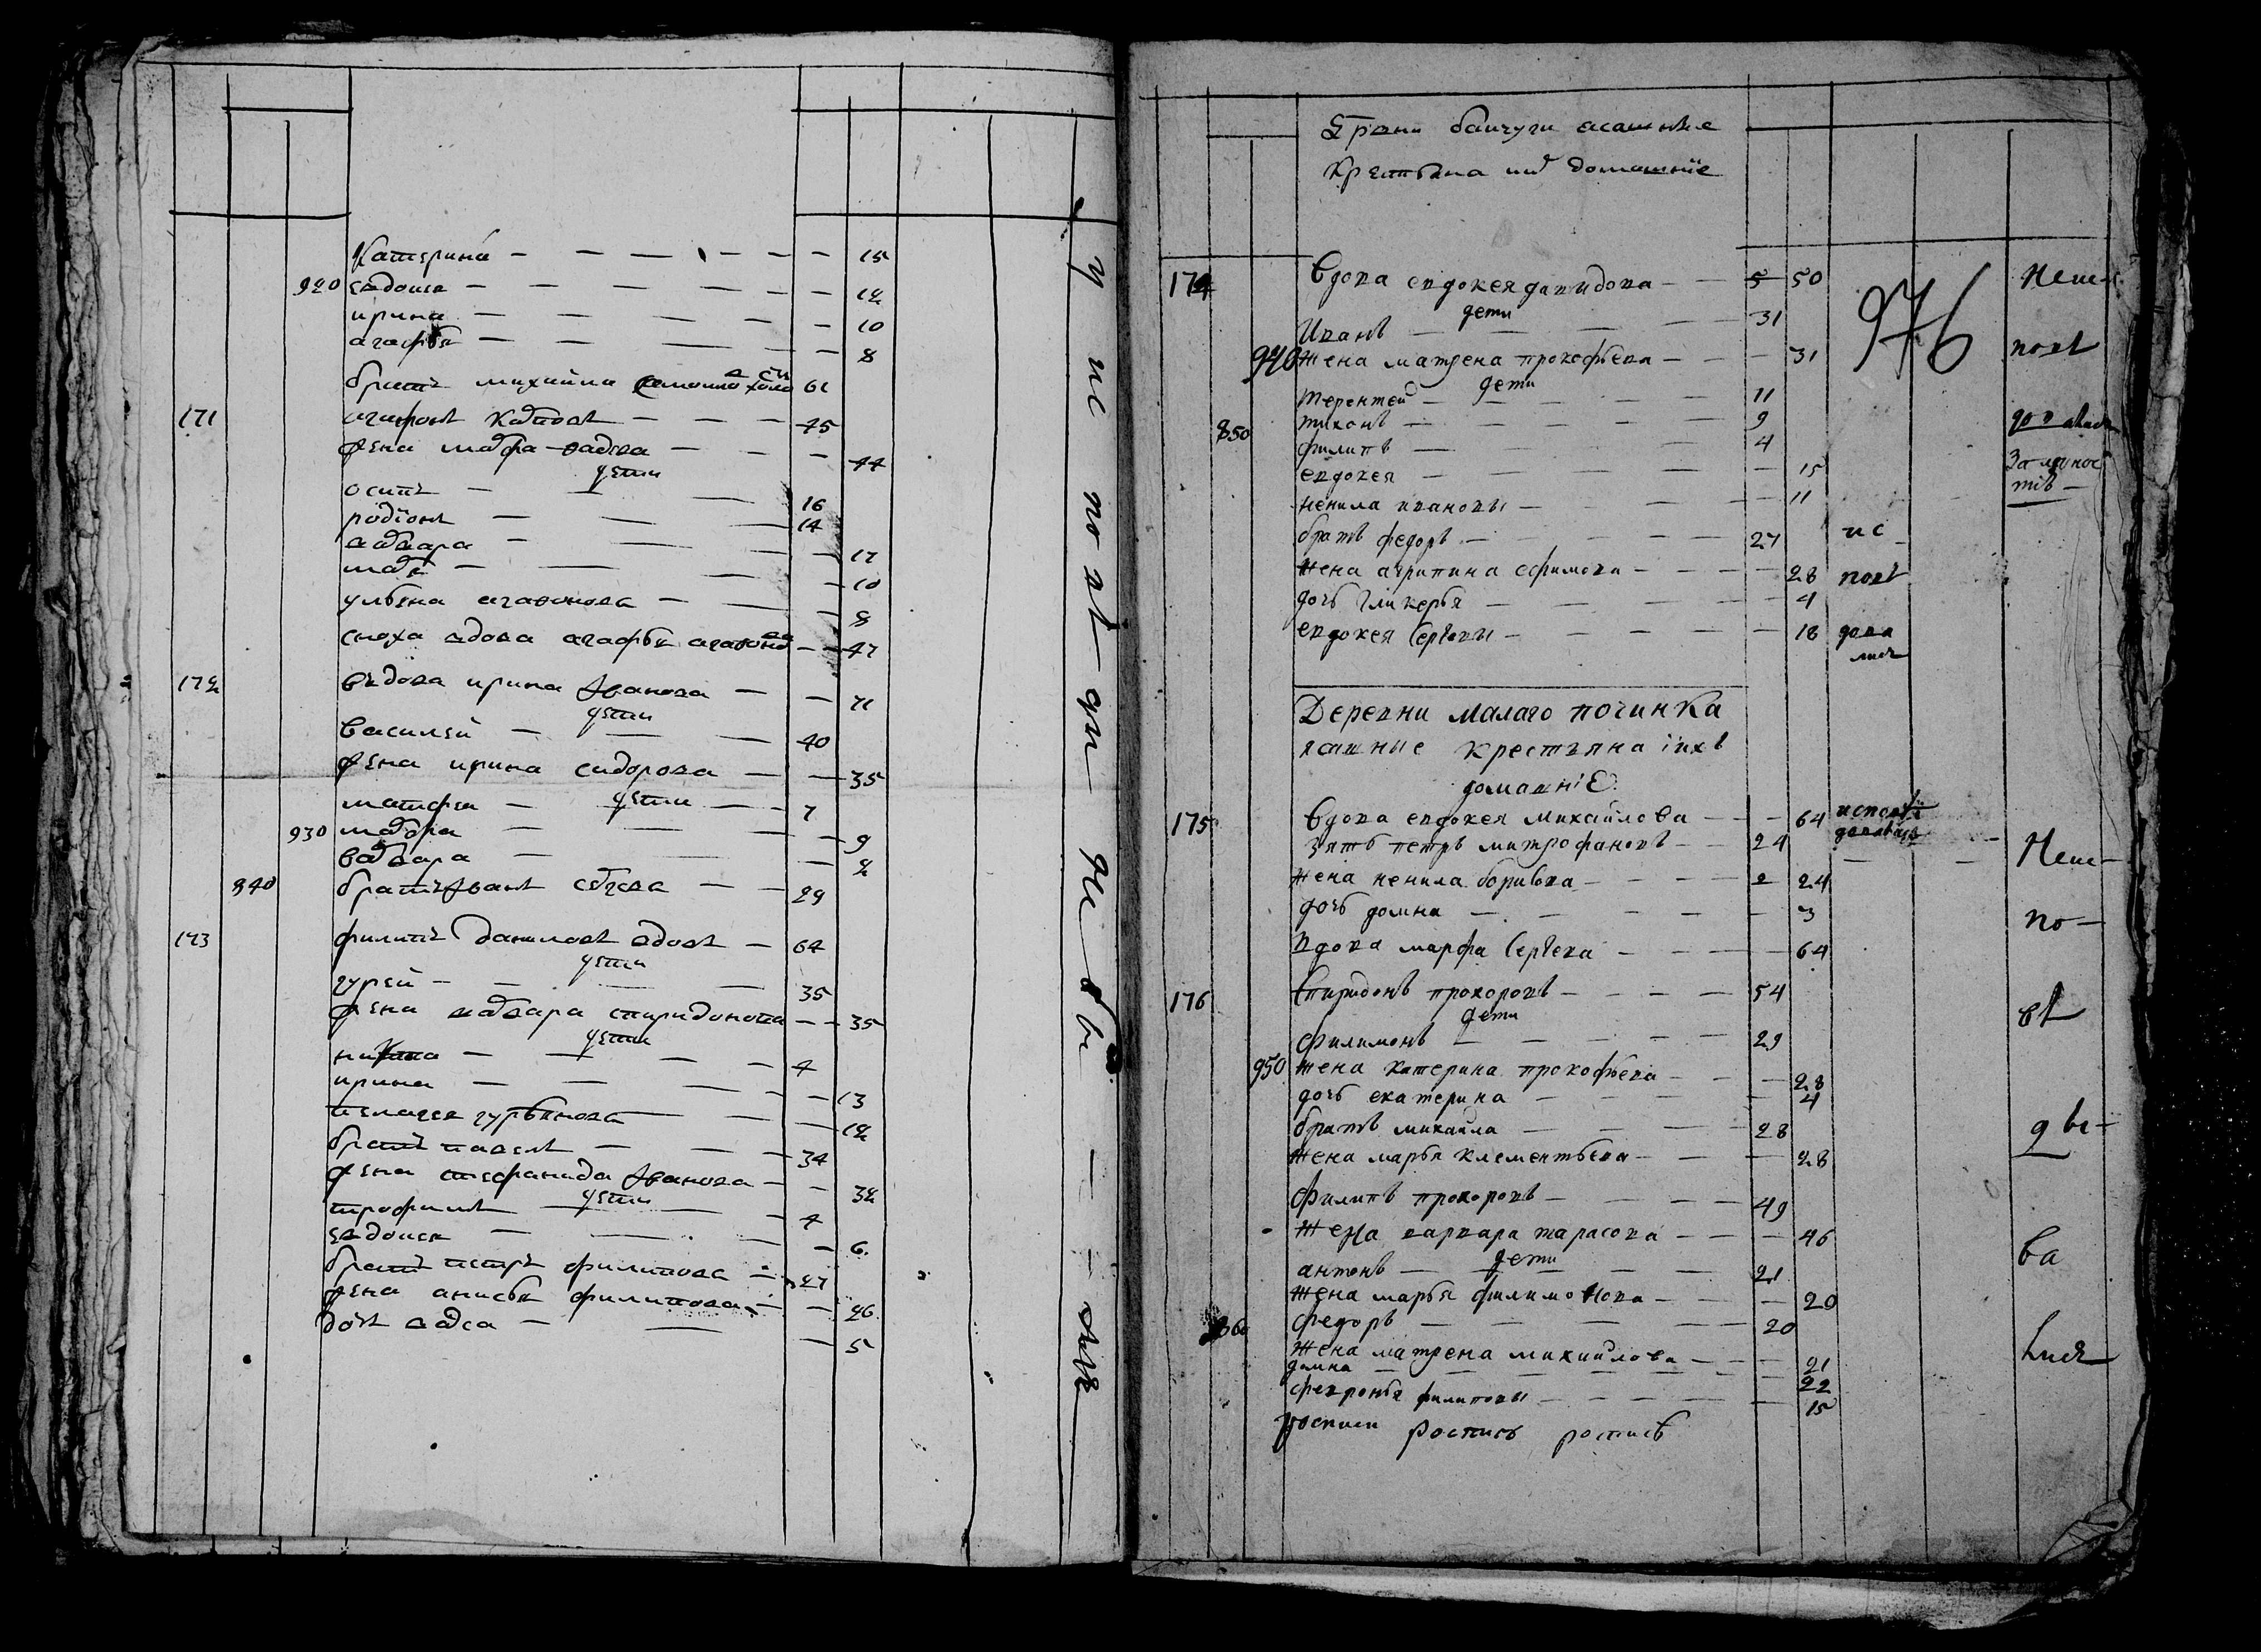 Катерина — 15
920 евдокея — 12
ирина — 10
агафья — 8
братъ михаила 61
171 агафонъ карповъ — 45
жена марфа — 44
дети
осипъ — 16
родионъ — 14
варвара — 17
марья — 10
ульяна агафонова — 8
сноха вдова агафья — 47
172 вдова ирина иванова — 71
дети
василей — 40
жена ирина сидорова — 35
дети
матфей — 7
930 марфа — 9
варвара — 2
840 братъ иванъ — 29
173 филипъ даниловъ вдовъ — 64
дети
гурей — 35
жена варвара спиридонова — 35
дети
никита — 4
ирина — 13
пелагея гурьянова — 12
братъ павелъ — 34
жена стефанида иванова — 32
дети
трофимъ — 4
евдокея — 6
братъ петръ филипова — 27
жена анисья филипова — 26
дочь — 5
у ис повѣ ди не бы — ли
крестьяна их домашние
174 вдова евдокея давидова — 50
дети
Иванъ — 31
940 жена матрена прокофьева — 31
дети
терентей — 11
850 тихонъ — 9
филипъ — 4
евдокея — 15
ненила ивановы — 11
братъ федоръ — 27
жена агрипина ефимова — 28
дочь гликерья — 4
евдокея сергѣевы — 18
976
ис
повѣ
не ис
повѣ
Деревни малаго починка
ясашные крестьяна ихъ
домашнiе
175 вдова евдокея михайлова — 64
зять петръ митрофановъ — 24
жена ненила борисова — 24
дочь домна — 3
вдова марфа сергѣева — 64
176 спиридонъ прохоровъ — 54
дети
филимонъ — 29
950 жена катерина прокофьева — 28
дочь екатерина — 4
братъ михайла — 28
жена марья клементьева — 28
филипъ прохоровъ — 49
жена варвара тарасова — 46
дети
антонъ — 21
жена марья филимонова — 20
860 федоръ — 20
жена матрена михайлова — 21
домна — 22
февронья филиповы — 15
роспись роспись
Не ис —
по —
вѣ
ды —
ва
лися